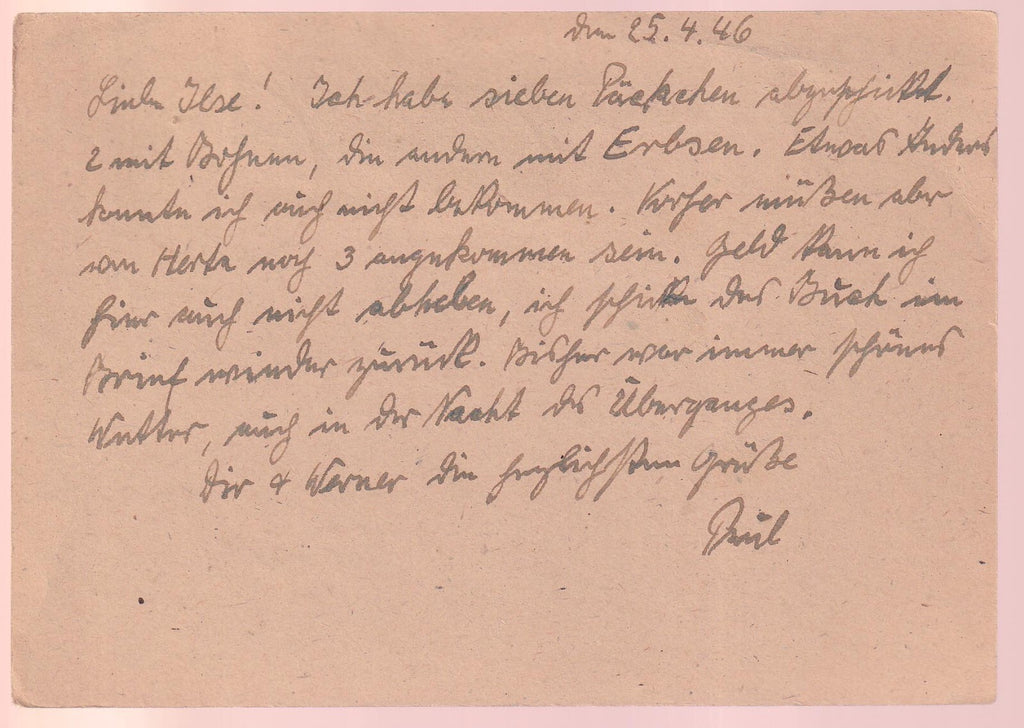 den 25.4.46
Liebe Ilse! Ich habe sieben Päckchen abgeschickt.
2 mit Bohnen, die andern mit Erbsen. Etwas Anders
konnte ich auch nicht bekommen. Vorher müßen aber
von Herta noch 3 angekommen sein. Geld kann ich
hier auch nicht abheben, ich schicke das Buch im
Brief wieder zurück. Bisher war immer schönes
Wetter, auch in der Nacht des Überganges.
Dir & Werner die herzlichsten Grüße
Paul